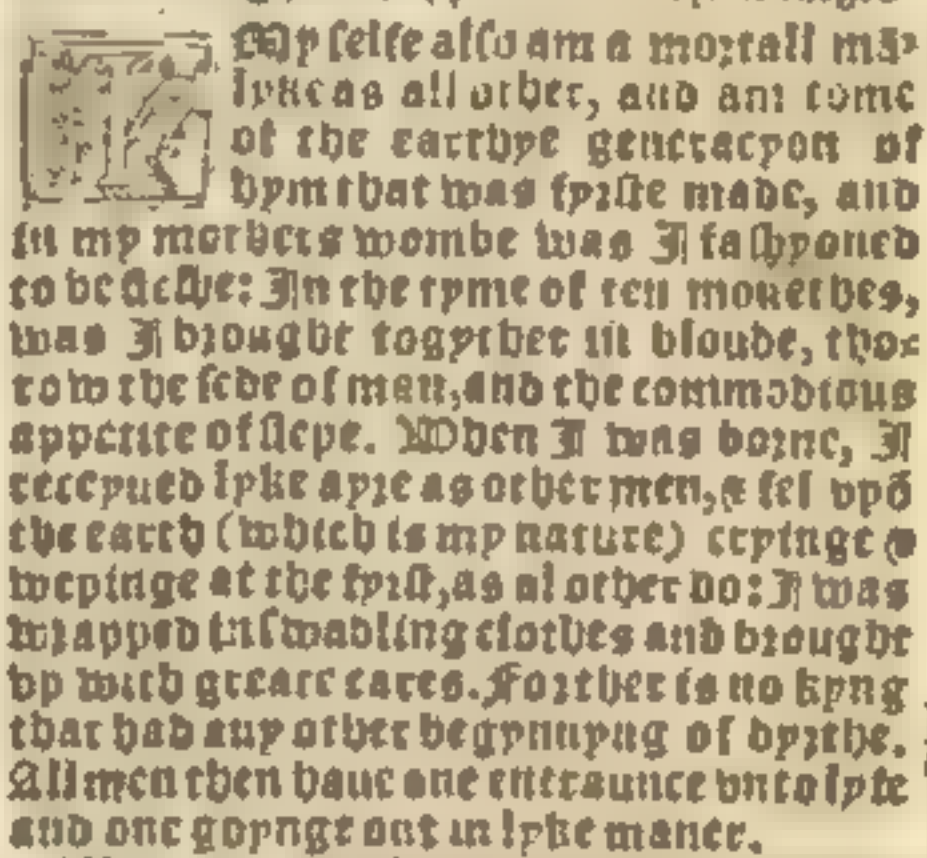 I My selfe also am a mortall mā,
lyke as all other, and am come
of the earthye generacyon of
hym that was fyrste made, and
in my mothers wombe was I fashyoned
to be fleshe: In the tyme of ten monethes,
was I brought togyther in bloude, tho-
row the sede of man, and the commodious
appetite of slepe. When I was borne, I
receyued lyke ayre as other men, & fel vpō
the earth (which is my nature) cryinge &
wepinge at the fyrst, as al other do: I was
wrapped in swadling clothes and brought
vp with greate cares. For ther is no kyng
that had any other begynnyng of byrthe.
All men then haue one entraunce vnto lyfe
and one goynge out in lyke maner.